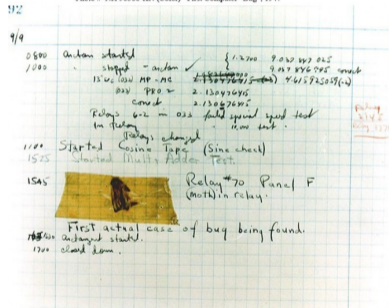 92
9/9
0800 Antan started
1000 " stopped - antan ✓ { 1.2700 9.037 847 025
9.037 846 995 correct
13"uc (033) MP - MC 4.615925059(-2)
(033) PRO 2 2.130476415
correct 2.130676415
Relays 6-2 in 033 failed special speed test
In Relay " test.
Relays changed
1100 Started Cosine Tape (Sine check)
1525 Started Mult+Adder Test.
1545 Relay #70 Panel F
(moth) in relay.
First actual case of bug being found.
antangent started.
1700 closed down.